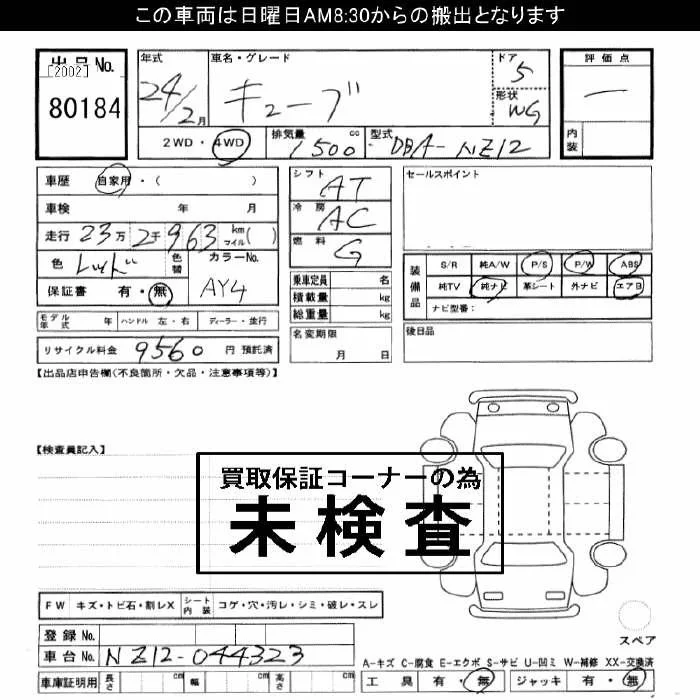 この車両は日曜日AM8:30からの搬出となります
出品No. 年式 車名・グレード ドア 5 評価点
[2002] 80184 24/2月 キューブ 形状 WG 一
2WD・4WD 排気量 1500 cc 型式 DBA-NZ12 内装
車歴 自家用・( ) シフト AT セールスポイント
車検 年 月 冷房 AC
走行 23万2千963 km マイル( ) 燃料 G
色 レッド 色替 カラーNo. AY4
保証書 有・無
乗車定員 名
積載量 kg
総重量 kg
装備品 S/R 純A/W P/S P/W ABS
純TV 純ナビ 革シート 外ナビ エアB
ナビ型番:
モデル年式 年 ハンドル 左・右 ディーラー・並行
名変期限 月 日
後日品
リサイクル料金 9560 円 預託済
【出品店申告欄(不良箇所・欠品・注意事項等)】
【検査員記入】
買取保証コーナーの為
未検査
FW キズ・トビ石・割レX シート内装 コゲ・穴・汚レ・シミ・破レ・スレ
スペア
登録No.
車台No. NZ12-044323
A-キズ C-腐食 E-エクボ S-サビ U-凹ミ W-補修 XX-交換済
車庫証明用 長さ cm 幅 cm 高さ cm 工具 有・無 ジャッキ 有・無